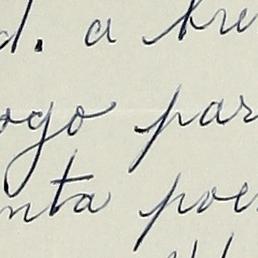 d. a bre
ogo par
nta poe